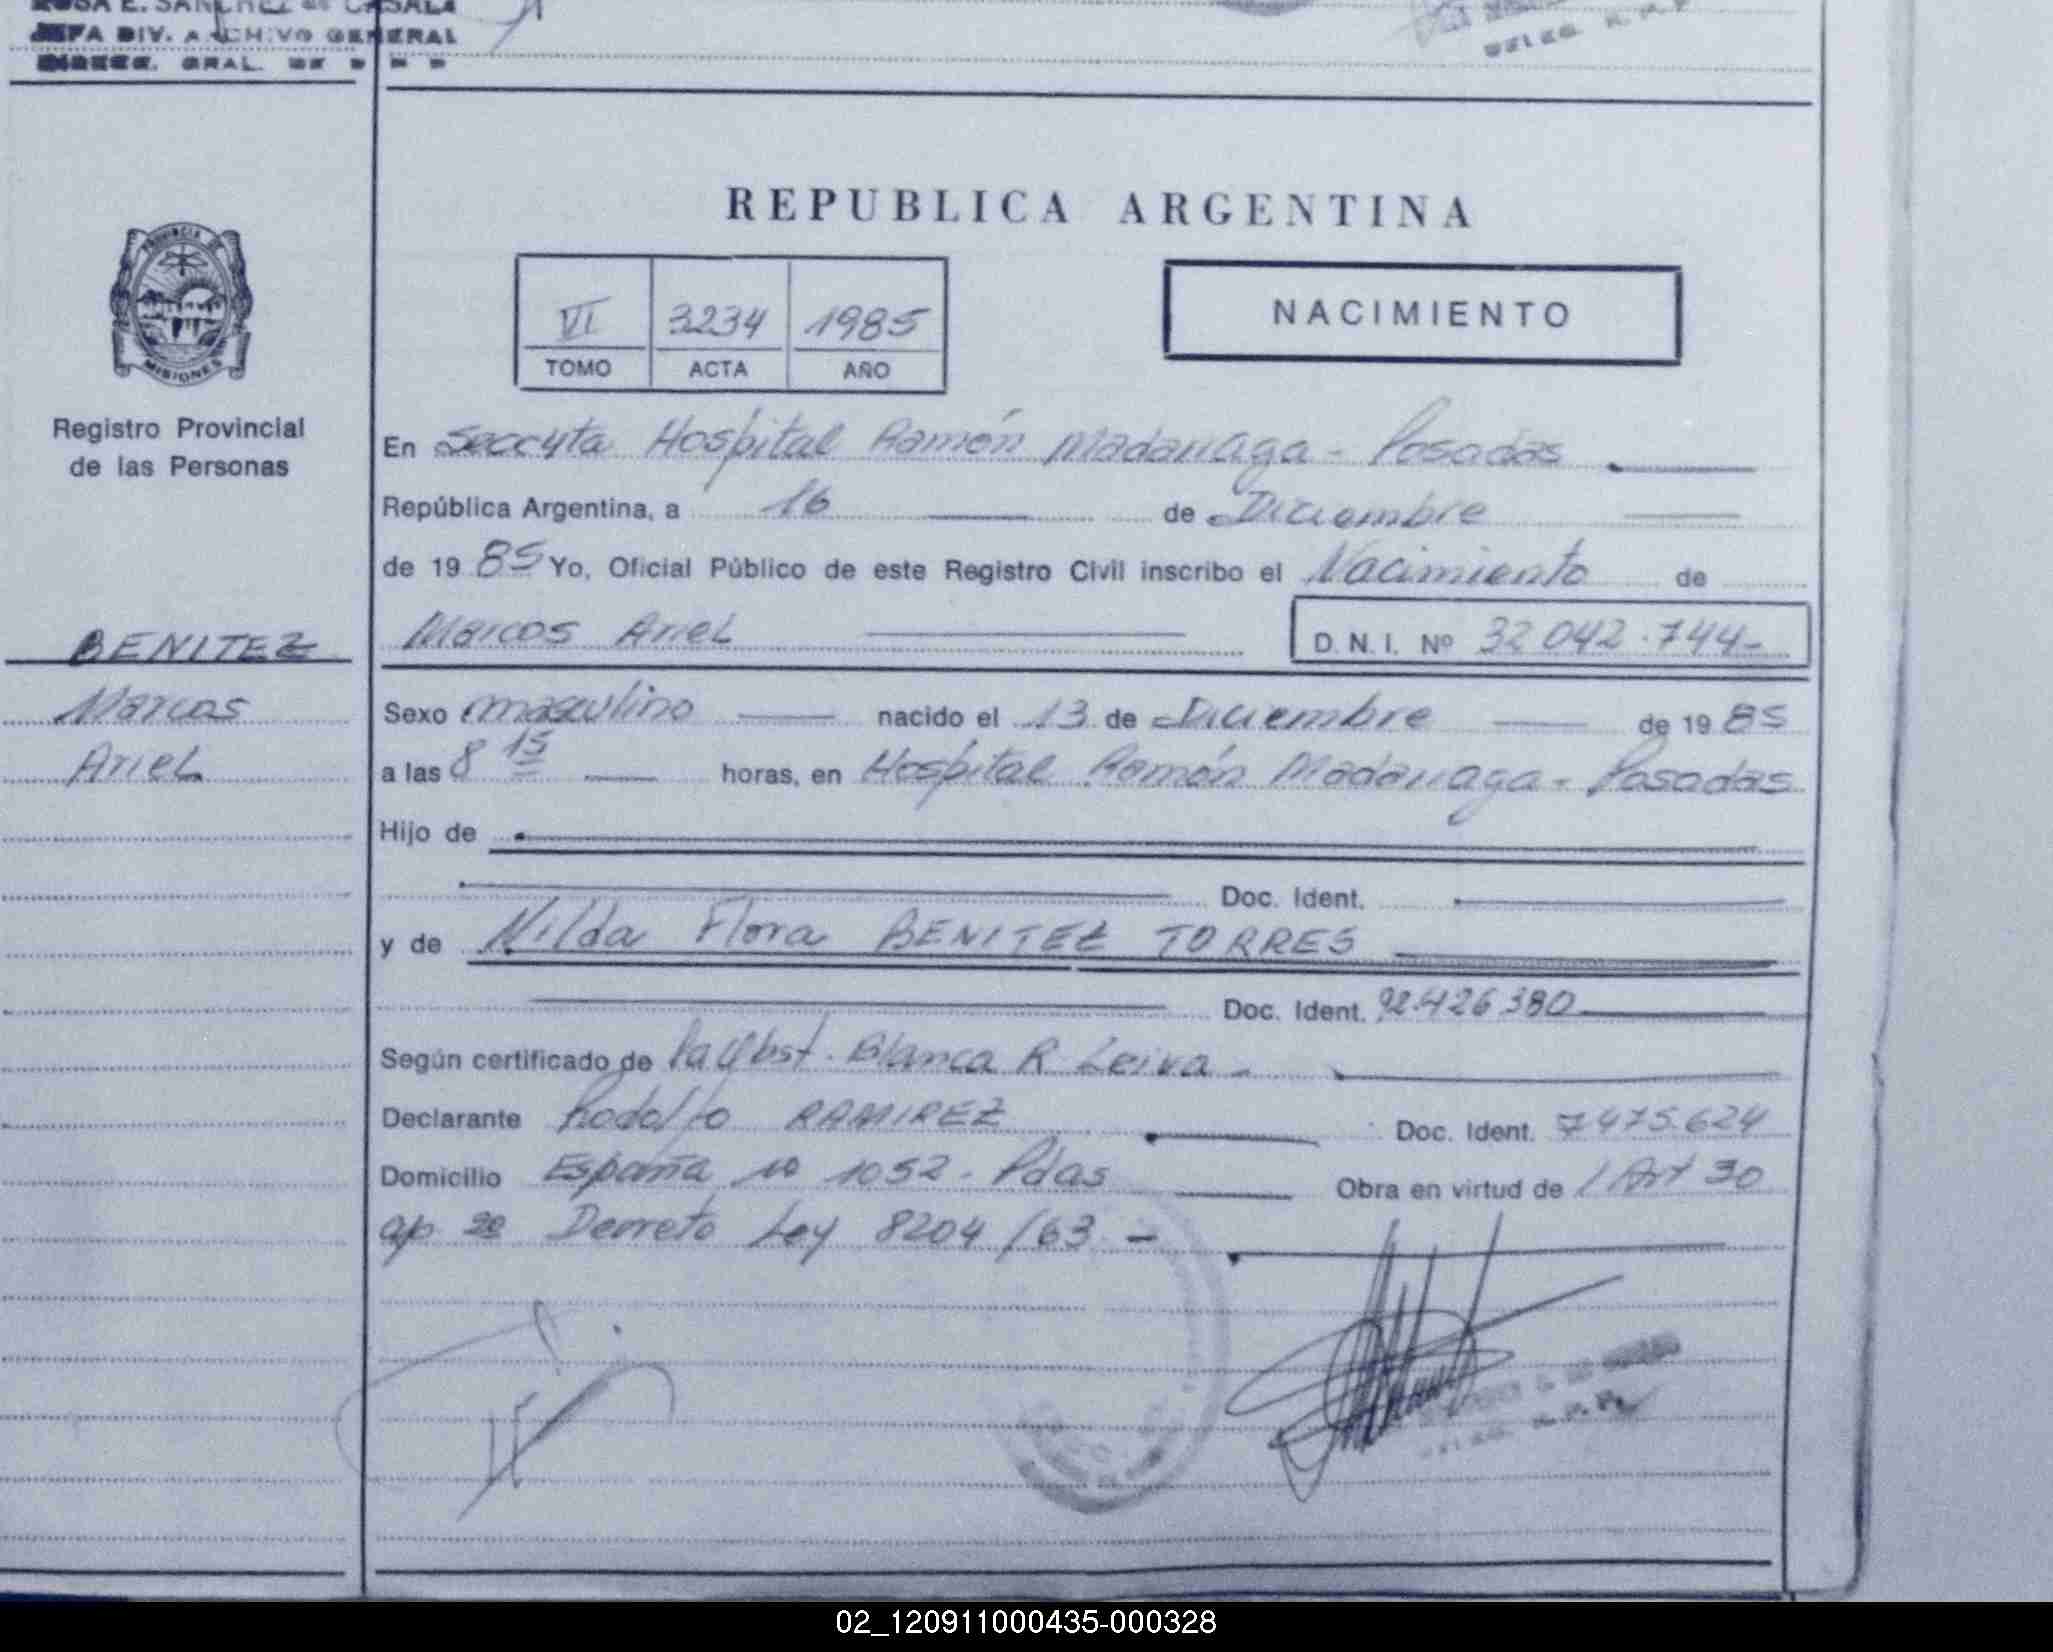 ROSA E. SANCHEZ de CASALA
JEFA DIV. ARCHIVO GENERAL
DIRECC. GRAL. DE
DELEG. R. P. P.
REPUBLICA ARGENTINA
PROVINCIA DE
MISIONES
Registro Provincial
de las Personas
VI 3234 1985
TOMO ACTA AÑO
NACIMIENTO
En Seccyta Hospital Ramón Madariaga - Posadas
República Argentina, a 16 de Diciembre
de 19 85 Yo, Oficial Público de este Registro Civil inscribo el Nacimiento de
BENITEZ
Marcos Ariel D. N. I. Nº 32 042.744-
Marcos
Sexo masculino nacido el 13 de Diciembre de 19 85
Ariel
a las 8 15 horas, en Hospital Ramón Madariaga - Posadas
Hijo de
Doc. Ident.
y de Nilda Flora BENITEZ TORRES
Doc. Ident. 92.426 380
Según certificado de la Obst. Blanca R Leiva -
Declarante Rodolfo RAMIREZ Doc. Ident. 7475.624
Domicilio España nº 1052 - Pdas Obra en virtud de / Art 30
ap 2º Decreto Ley 8204 /63 -
02_120911000435-000328